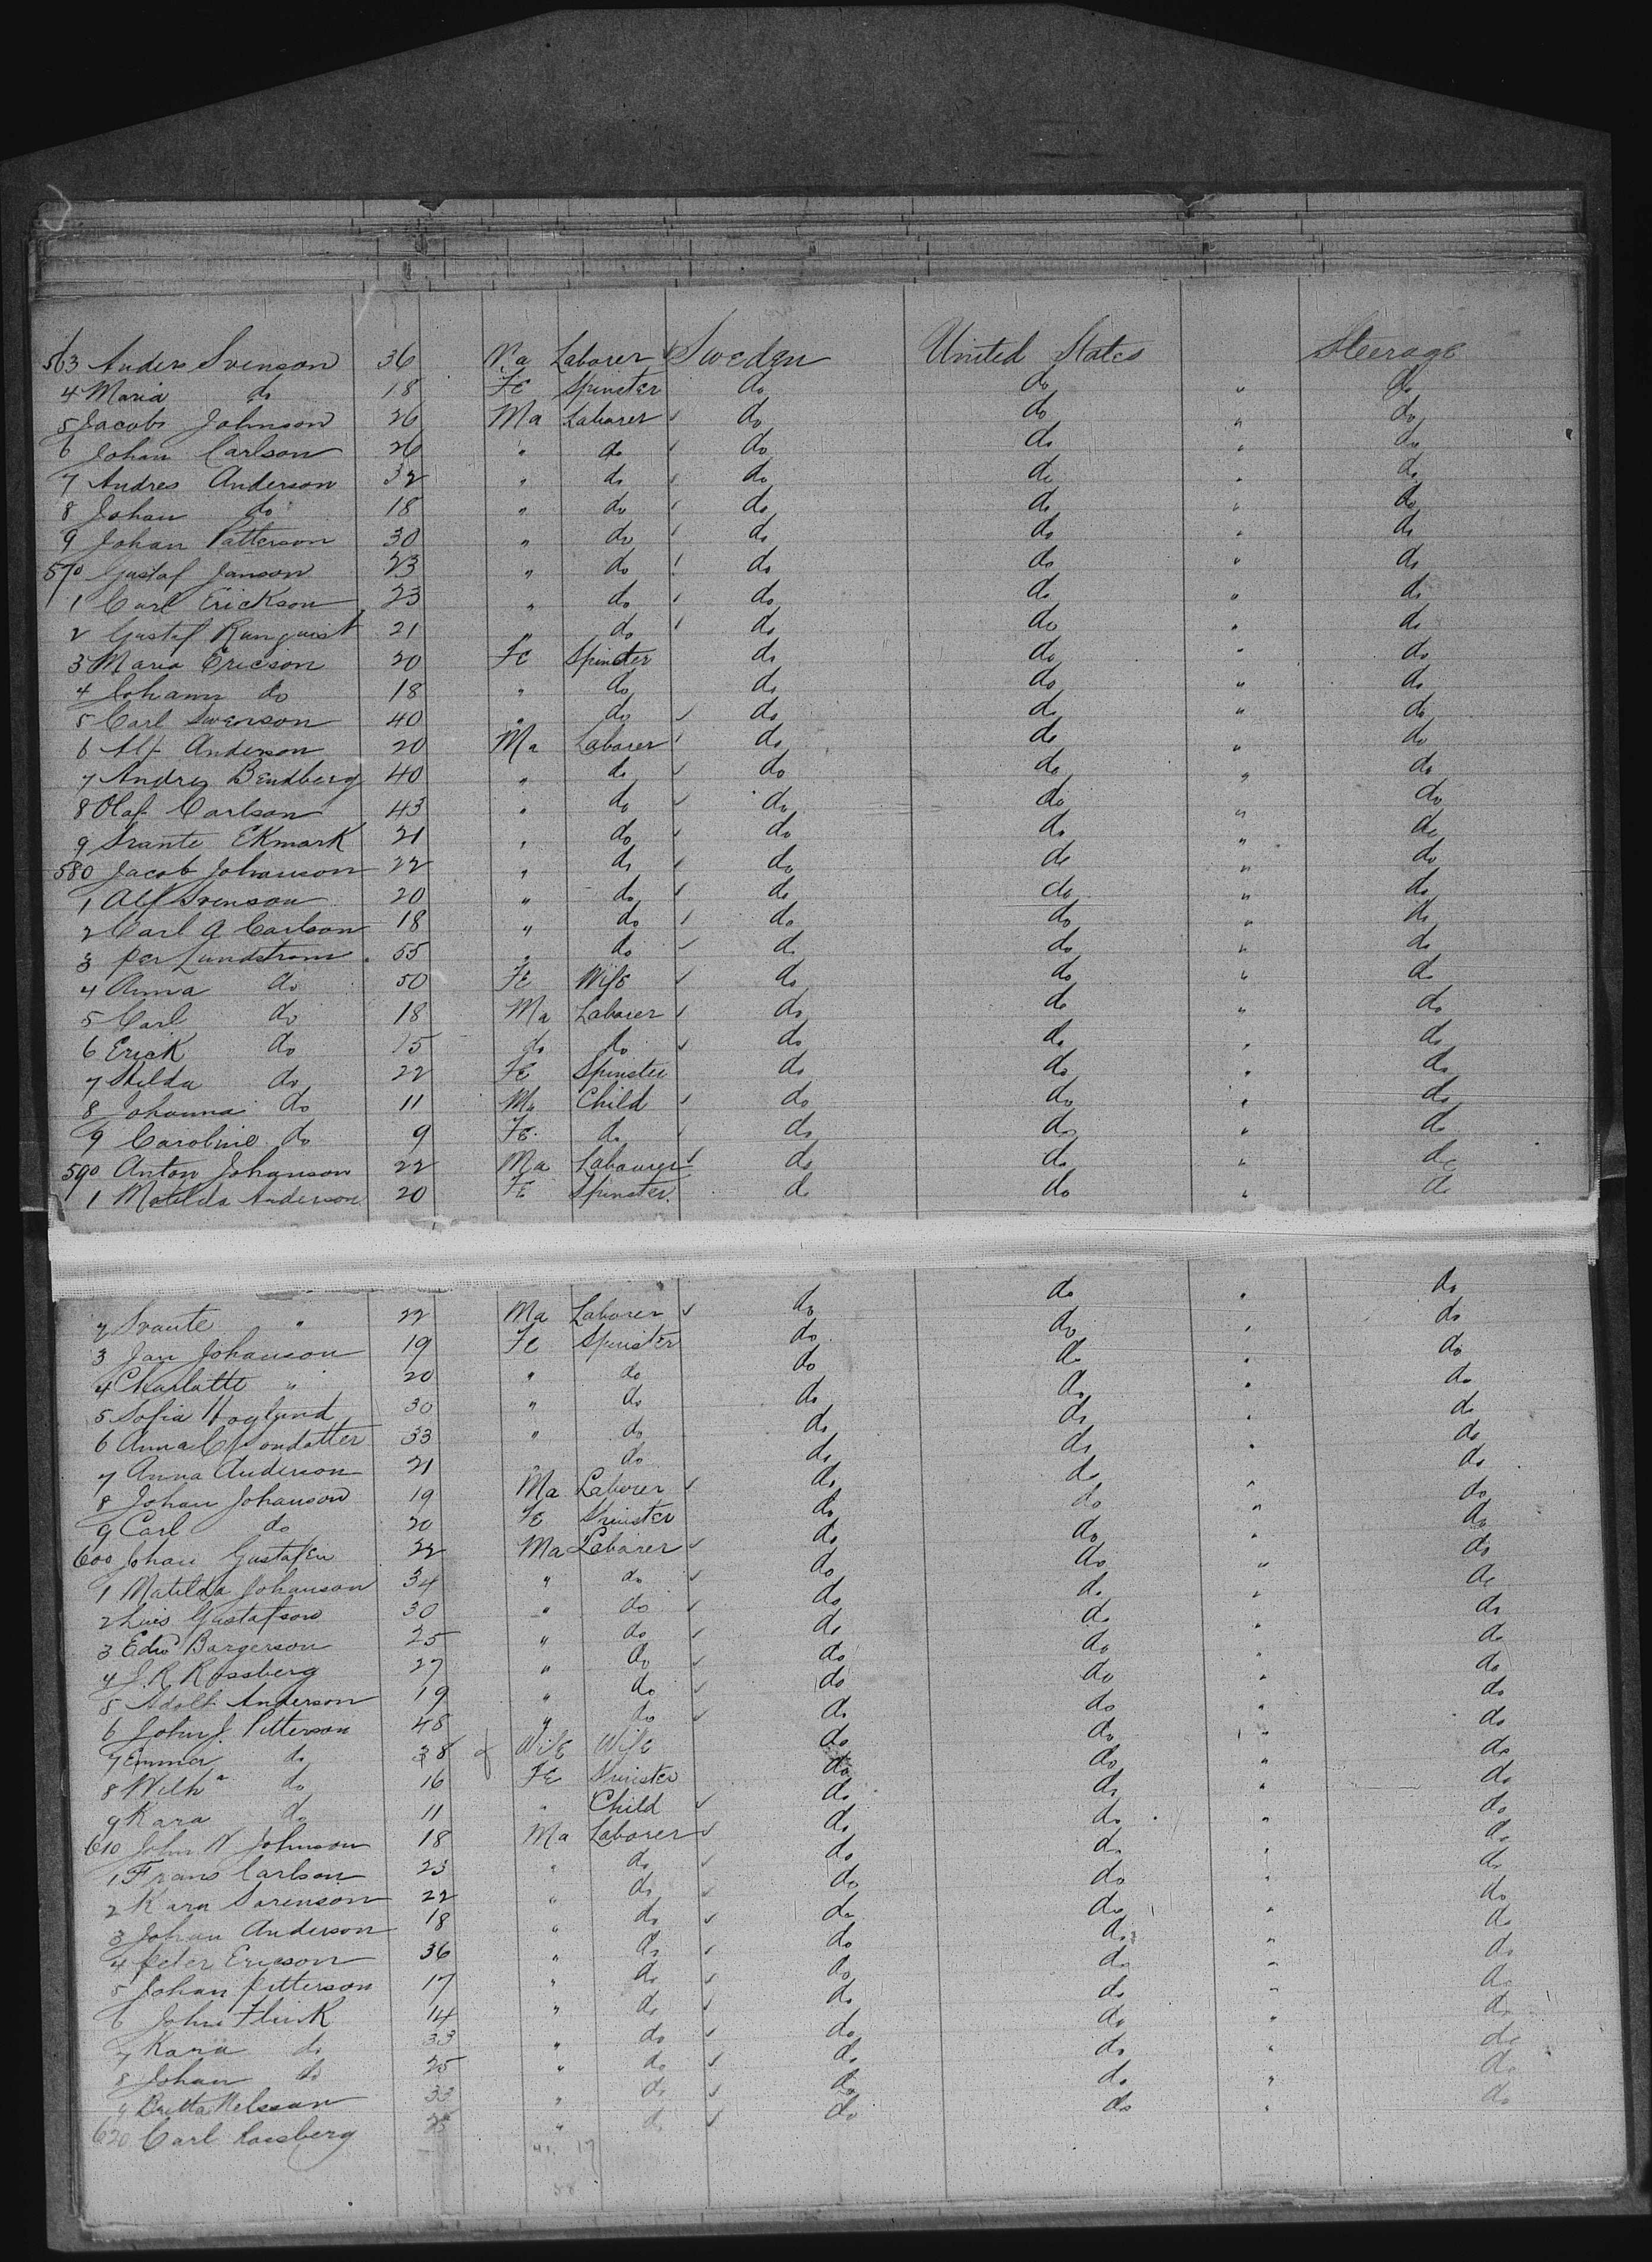 563 Anders Svenson 36 Ma Laborer Sweden United States Steerage
4 Maria do 18 Fe Spinster do do " do
5 Jacob Johnson 26 Ma Laborer do do " do
6 Johan Carlson 26 " do do do " do
7 Andres Anderson 32 " do do do " do
8 Johan do 18 " do do do " do
9 Johan Patterson 30 " do do do " do
570 Gustaf Janson 23 " do do do " do
1 Carl Erickson 23 " do do do " do
2 Gustaf Runquist 21 " do do do " do
3 Maria Ericson 20 Fe Spinster do do " do
4 Johann do 18 " do do do " do
5 Carl Swenson 40 " do do do " do
6 Alf Anderson 20 Ma Laborer do do " do
7 Andrez Bendberg 40 " do do do " do
8 Olaf Carlson 43 " do do do " do
9 Svante Ekmark 21 " do do do " do
580 Jacob Johanson 22 " do do do " do
1 Alf Svenson 20 " do do do " do
2 Carl A Carlson 18 " do do do " do
3 Per Lundstrom 55 " do do do " do
4 Anna do 50 Fe Wife do do " do
5 Carl do 18 Ma Laborer do do " do
6 Erick do 15 do do do do " do
7 Hilda do 22 Fe Spinster do do " do
8 Johanna do 11 Ma Child do do " do
9 Caroline do 9 Fe do do do " do
590 Anton Johanson 22 Ma Labourer do do " do
1 Matilda Anderson 20 Fe Spinster do do " do
2 Svante " 22 Ma Laborer do do " do
3 Jan Johanson 19 Fe Spinster do do " do
4 Charlotte " 20 " do do do " do
5 Sofia Hoglund 30 " do do do " do
6 Anna 33 " do do do " do
7 Anna Anderson 21 do do do " do
8 Johan Johanson 19 Ma Laborer do do " do
9 Carl do 20 Fe Spinster do do " do
600 Johan Gustafsen 22 Ma Laborer do do " do
1 Matilda Johanson 34 " do do do " do
2 Gustafson 30 " do do do " do
3 Edw Bargerson 25 " do do do " do
4 J. R Rossberg 27 " do do do " do
5 Adolf Anderson 19 " do do do " do
6 John J. Petterson 48 " do do do " do
7 Emma do 38 Wife Wife do do " do
8 Wilha do 16 Fe Spinster do do " do
9 Kara do 11 " Child do do " do
610 John N Johnson 18 Ma Laborer do do " do
1 Frans Carlson 23 " do do do " do
2 Kara Sorenson 22 " do do do " do
3 Johan Anderson 18 " do do do " do
4 Peter Ericson 36 " do do do " do
5 Johan Petterson 17 " do do do " do
6 John Flink 14 " do do do " do
7 Karia do 33 " do do do " do
8 Johan do 25 " do do do " do
9 Britta Nelsson 33 " do do do " do
620 Carl " do do do " do